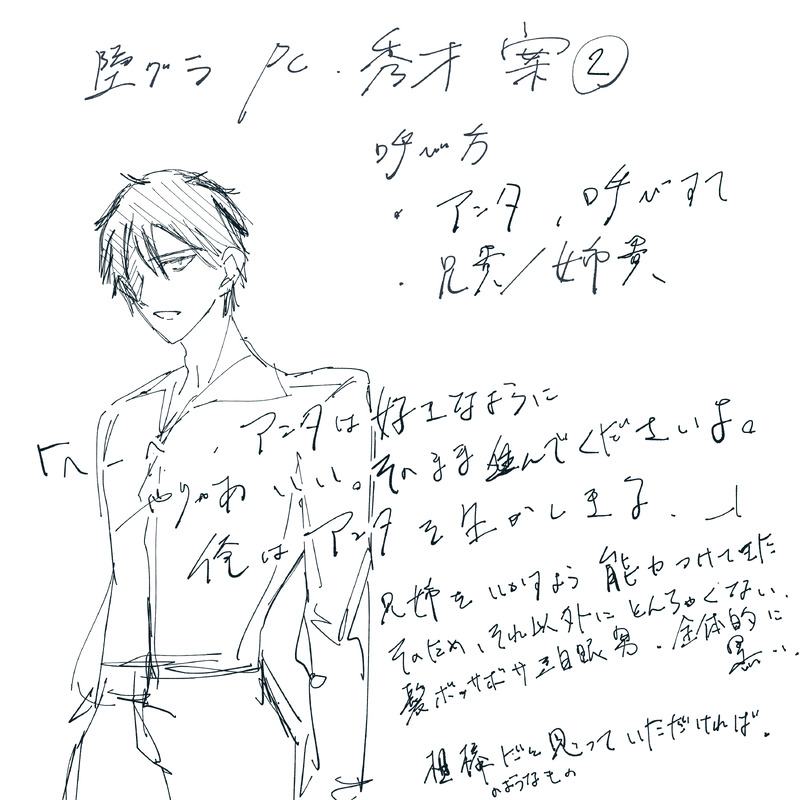 堕グラ PC・秀才 案②
呼び方
・アンタ、呼びすて
・兄貴/姉貴、
「へーへー、アンタは好きなように
やりゃあいい。そのまま進んでくださいよ。
俺はアンタを生かしまする。」
兄姉をいかすよう能力つけてきた
そのため、それ以外にとんちゃくない、
髪ボッサボサ三白眼男・全体的に
黒い、
模様だと思っていただければ。
のようなもの